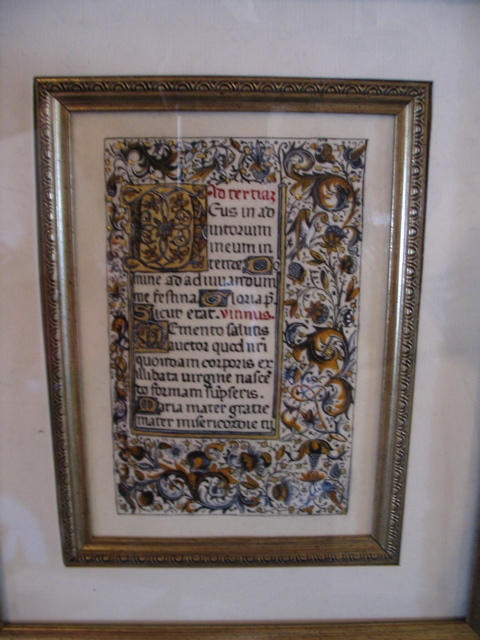 Ad tertiaz
Deus in ad
iutorium
meum in
tende
mine ad adiuuandum
me festina. Gloria p.
Sicut erat. Ympnus.
Memento salutis
auctor quod nr̄i
quondam corporis ex
illibata uirgine nascē
do formam sūpseris.
Maria mater gratie
mater misericordie tu